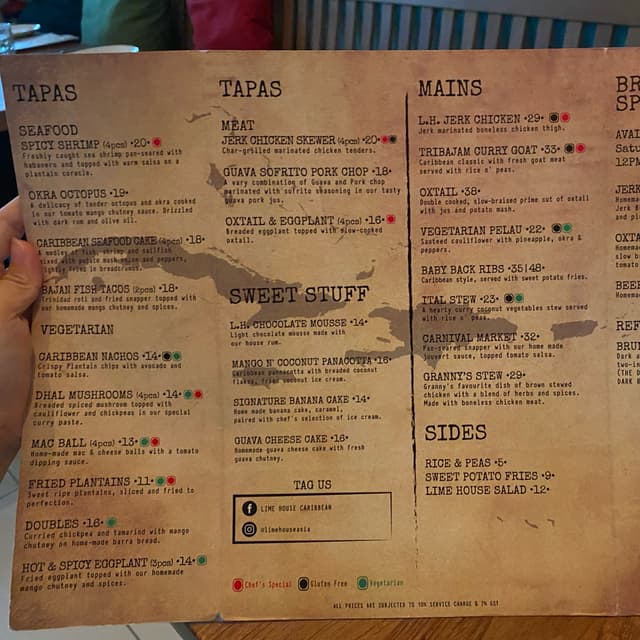 TAPAS
SEAFOOD
SPICY SHRIMP (4pcs) •20•
Freshly caught sea shrimp pan-seared with
habanero and topped with warm salsa on a
plantain coracle.
OKRA OCTOPUS •19•
A delicacy of tender octopus and okra cooked
in our tomato mango chutney sauce. Drizzled
with dark rum and olive oil.
CARIBBEAN SEAFOOD CAKE (4pcs) •18•
A medley of fish, shrimp and
mixed with onion and peppers,
lightly fried in breadcrumbs.
BAJAN FISH TACOS (2pcs) •18•
Trinidad roti and fried snapper topped with
our homemade mango chutney and spices.
VEGETARIAN
CARIBBEAN NACHOS •14•
Crispy Plantain chips with avocado and
tomato salsa.
DHAL MUSHROOMS (4pcs) •14•
Breaded spiced mushroom topped with
cauliflower and chickpeas in our special
curry paste.
MAC BALL (4pcs) •13•
Home-made mac & cheese balls with a tomato
dipping sauce.
FRIED PLANTAINS •11•
Sweet ripe plantains, sliced and fried to
perfection.
DOUBLES •16•
Curried chickpea and tamarind with mango
chutney on home-made barra bread.
HOT & SPICY EGGPLANT (3pcs) •14•
Fried eggplant topped with our homemade
mango chutney and spices.
TAPAS
MEAT
JERK CHICKEN SKEWER (4pcs) •20•
Char-grilled marinated chicken tenders.
GUAVA SOFRITO PORK CHOP •18•
A vary combination of Guava and Pork chop
marinated with sofrito seasoning in our tasty
guava pork jus.
OXTAIL & EGGPLANT (4pcs) •16•
Breaded eggplant topped with slow-cooked
oxtail.
SWEET STUFF
L.H. CHOCOLATE MOUSSE •14•
Light chocolate mousse made with
our house rum.
MANGO N' COCONUT PANACOTTA •16•
Caribbean pannacotta with breaded coconut
flakes, fried coconut ice cream.
SIGNATURE BANANA CAKE •14•
Home made banana cake, caramel,
paired with chef's selection of ice cream.
GUAVA CHEESE CAKE •16•
Homemade guava cheese cake with fresh
guava chutney.
TAG US
LIME HOUSE CARIBBEAN
@limehouseasia
Chef's Special Gluten Free Vegetarian
MAINS
L.H. JERK CHICKEN •29•
Jerk marinated boneless chicken thigh.
TRIBAJAM CURRY GOAT •33•
Caribbean classic with fresh goat meat
served with rice n' peas.
OXTAIL •38•
Double cooked, slow-braised prime cut of oxtail
with jus and potato mash.
VEGETARIAN PELAU •22•
Sauteed cauliflower with pineapple, okra &
peppers.
BABY BACK RIBS •35|48•
Caribbean style, served with sweet potato fries.
ITAL STEW •23•
A hearty curry coconut vegetables stew served
with rice n' peas.
CARNIVAL MARKET •32•
Pan-seared snapper with our home made
jouvert sauce, topped tomato salsa.
GRANNY'S STEW •29•
Granny's favourite dish of brown stewed
chicken with a blend of herbs and spices.
Made with boneless chicken meat.
SIDES
RICE & PEAS •5•
SWEET POTATO FRIES •9•
LIME HOUSE SALAD •12•
ALL PRICES ARE SUBJECTED TO 10% SERVICE CHARGE & 7% GST
BR
SP
AVAI
Satu
12PM
JERK
Home
Jerk
and p
OXTA
Homem
slow
BEEF
Home
REF
BRUN
Dark a
two-in
(THE D
DARK